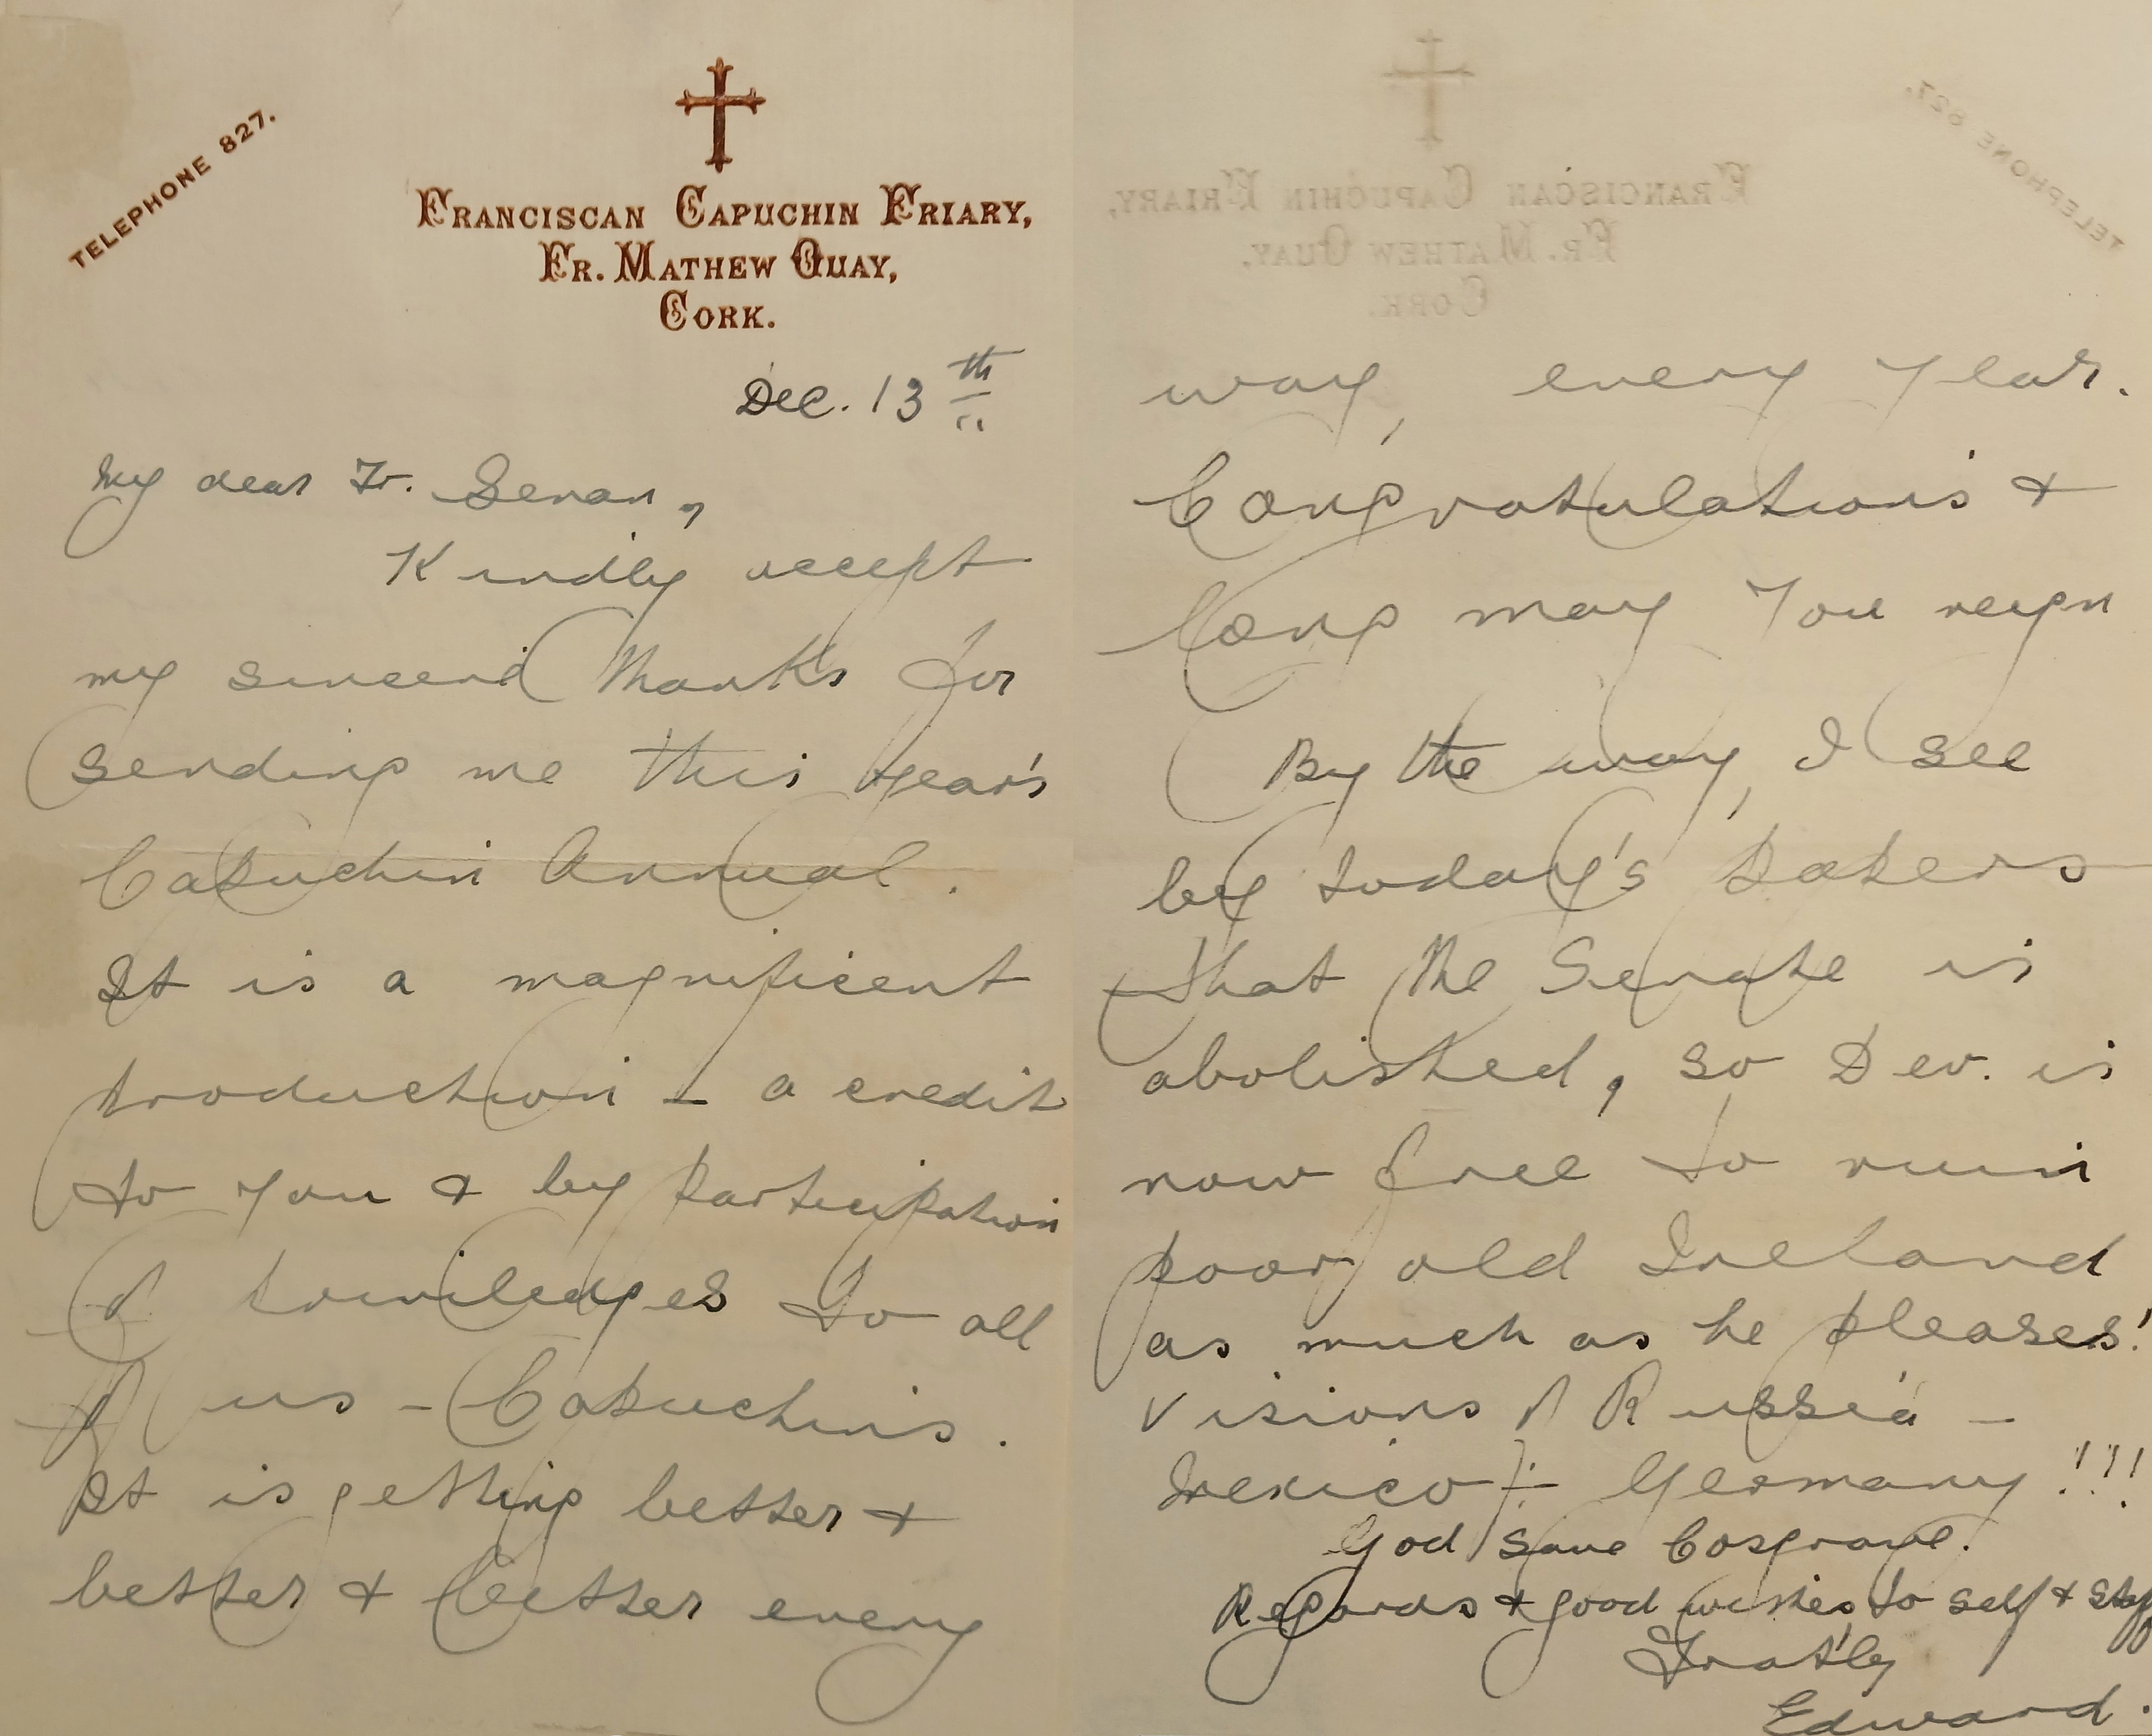 TELEPHONE 827.
FRANCISCAN CAPUCHIN FRIARY,
FR. MATHEW QUAY,
CORK.
Dec. 13th
My dear Fr. Senan,
Kindly accept
my sincerest thanks for
sending me this year's
Capuchin Annual.
It is a magnificent
production - a credit
to you & by participation
of privileges to all
of us - Capuchins.
It is getting better &
better & better every
way, every year.
Congratulations &
long may you reign
By the way, I see
by today's papers
that the Senate is
abolished, so Dev. is
now free to ruin
poor old Ireland
as much as he pleases!
Visions of Russia -
Mexico - Germany!!!
God save Cosgrave.
Regards & good wishes to self & staff
Frat'ly
Edward.